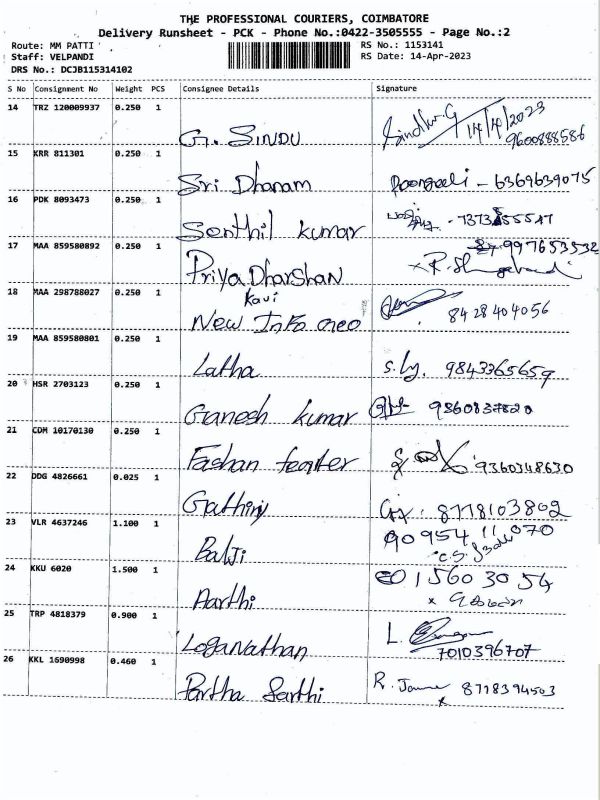 THE PROFESSIONAL COURIERS, COIMBATORE
Delivery Runsheet - PCK - Phone No.:0422-3505555 - Page No.:2
Route: MM PATTI RS No.: 1153141
Staff: VELPANDI RS Date: 14-Apr-2023
DRS No.: DCJB115314102
S No Consignment No Weight PCS Consignee Details Signature
14 TRZ 120009937 0.250 1 G. SINDU Sindhu.G 14/4/2023 9600888586
15 KRR 811301 0.250 1 Sri Dhanam - 6369639075
16 PDK 8093473 0.250 1 Senthil kumar
17 MAA 859580892 0.250 1 Priya Dharshan 997653532
18 MAA 298788027 0.250 1 Kavi New Info 8428404056
19 MAA 859580801 0.250 1 Latha 9843365659
20 HSR 2703123 0.250 1 Ganesh kumar 9360837820
21 CDM 10170130 0.250 1 Fashan 9360348630
22 DDG 4826661 0.025 1 8778103802
23 VLR 4637246 1.100 1 Balji 90954 11070
24 KKU 6020 1.500 1 Aarthi
25 TRP 4818379 0.900 1 Loganathan L. 7010396707
26 KKL 1690998 0.460 1 Partha Sarthi R. 8778394503